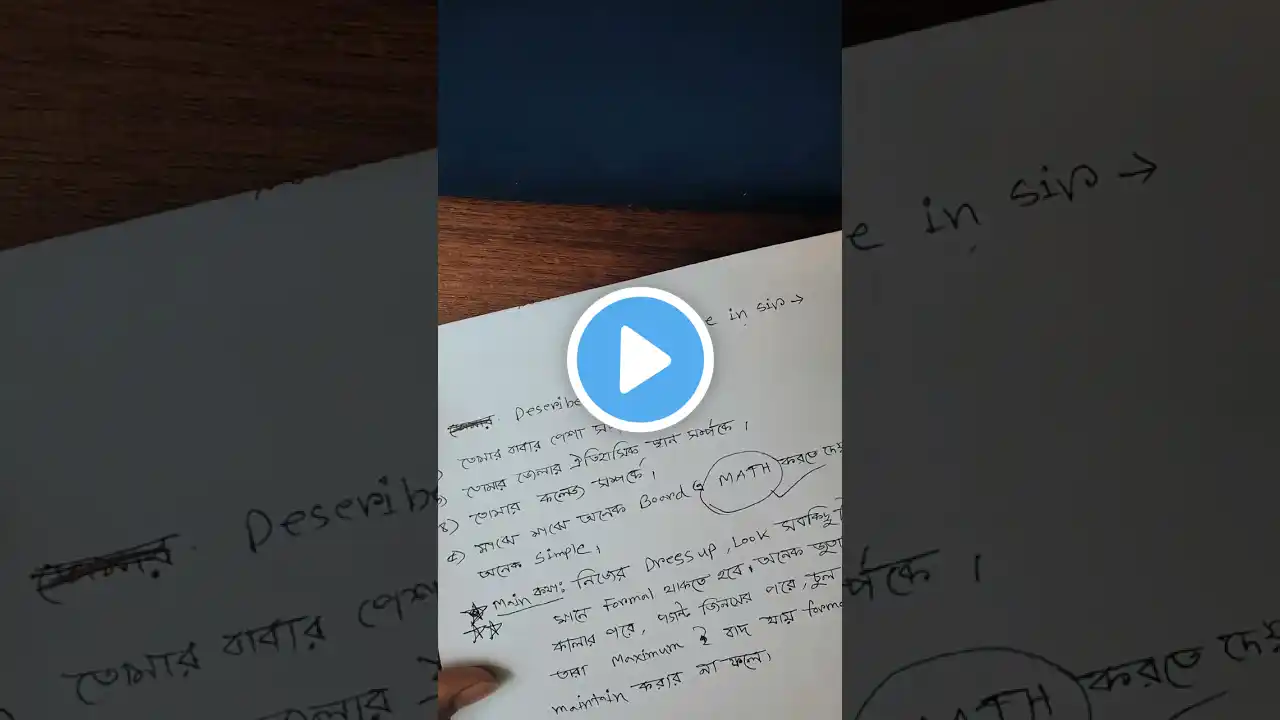 e in sir →
Describe
তোমার বাবার পেশা
তোমার জেলার ঐতিহাসিক স্থান সম্পর্কে।
৪) তোমার কলেজ সম্পর্কে।
৫) মাঝে মাঝে অনেক Board এ MATH করতে দেয়
অনেক simple,
Main কথা: নিজের Dress up, Look সবকিছু
মানে Formal থাকতে হবে, অনেক
কালার পরে, প্যান্ট জিনসের পরে, চুল
তারা Maximum ই বাদ যায় forma
maintain করার না ফলে,